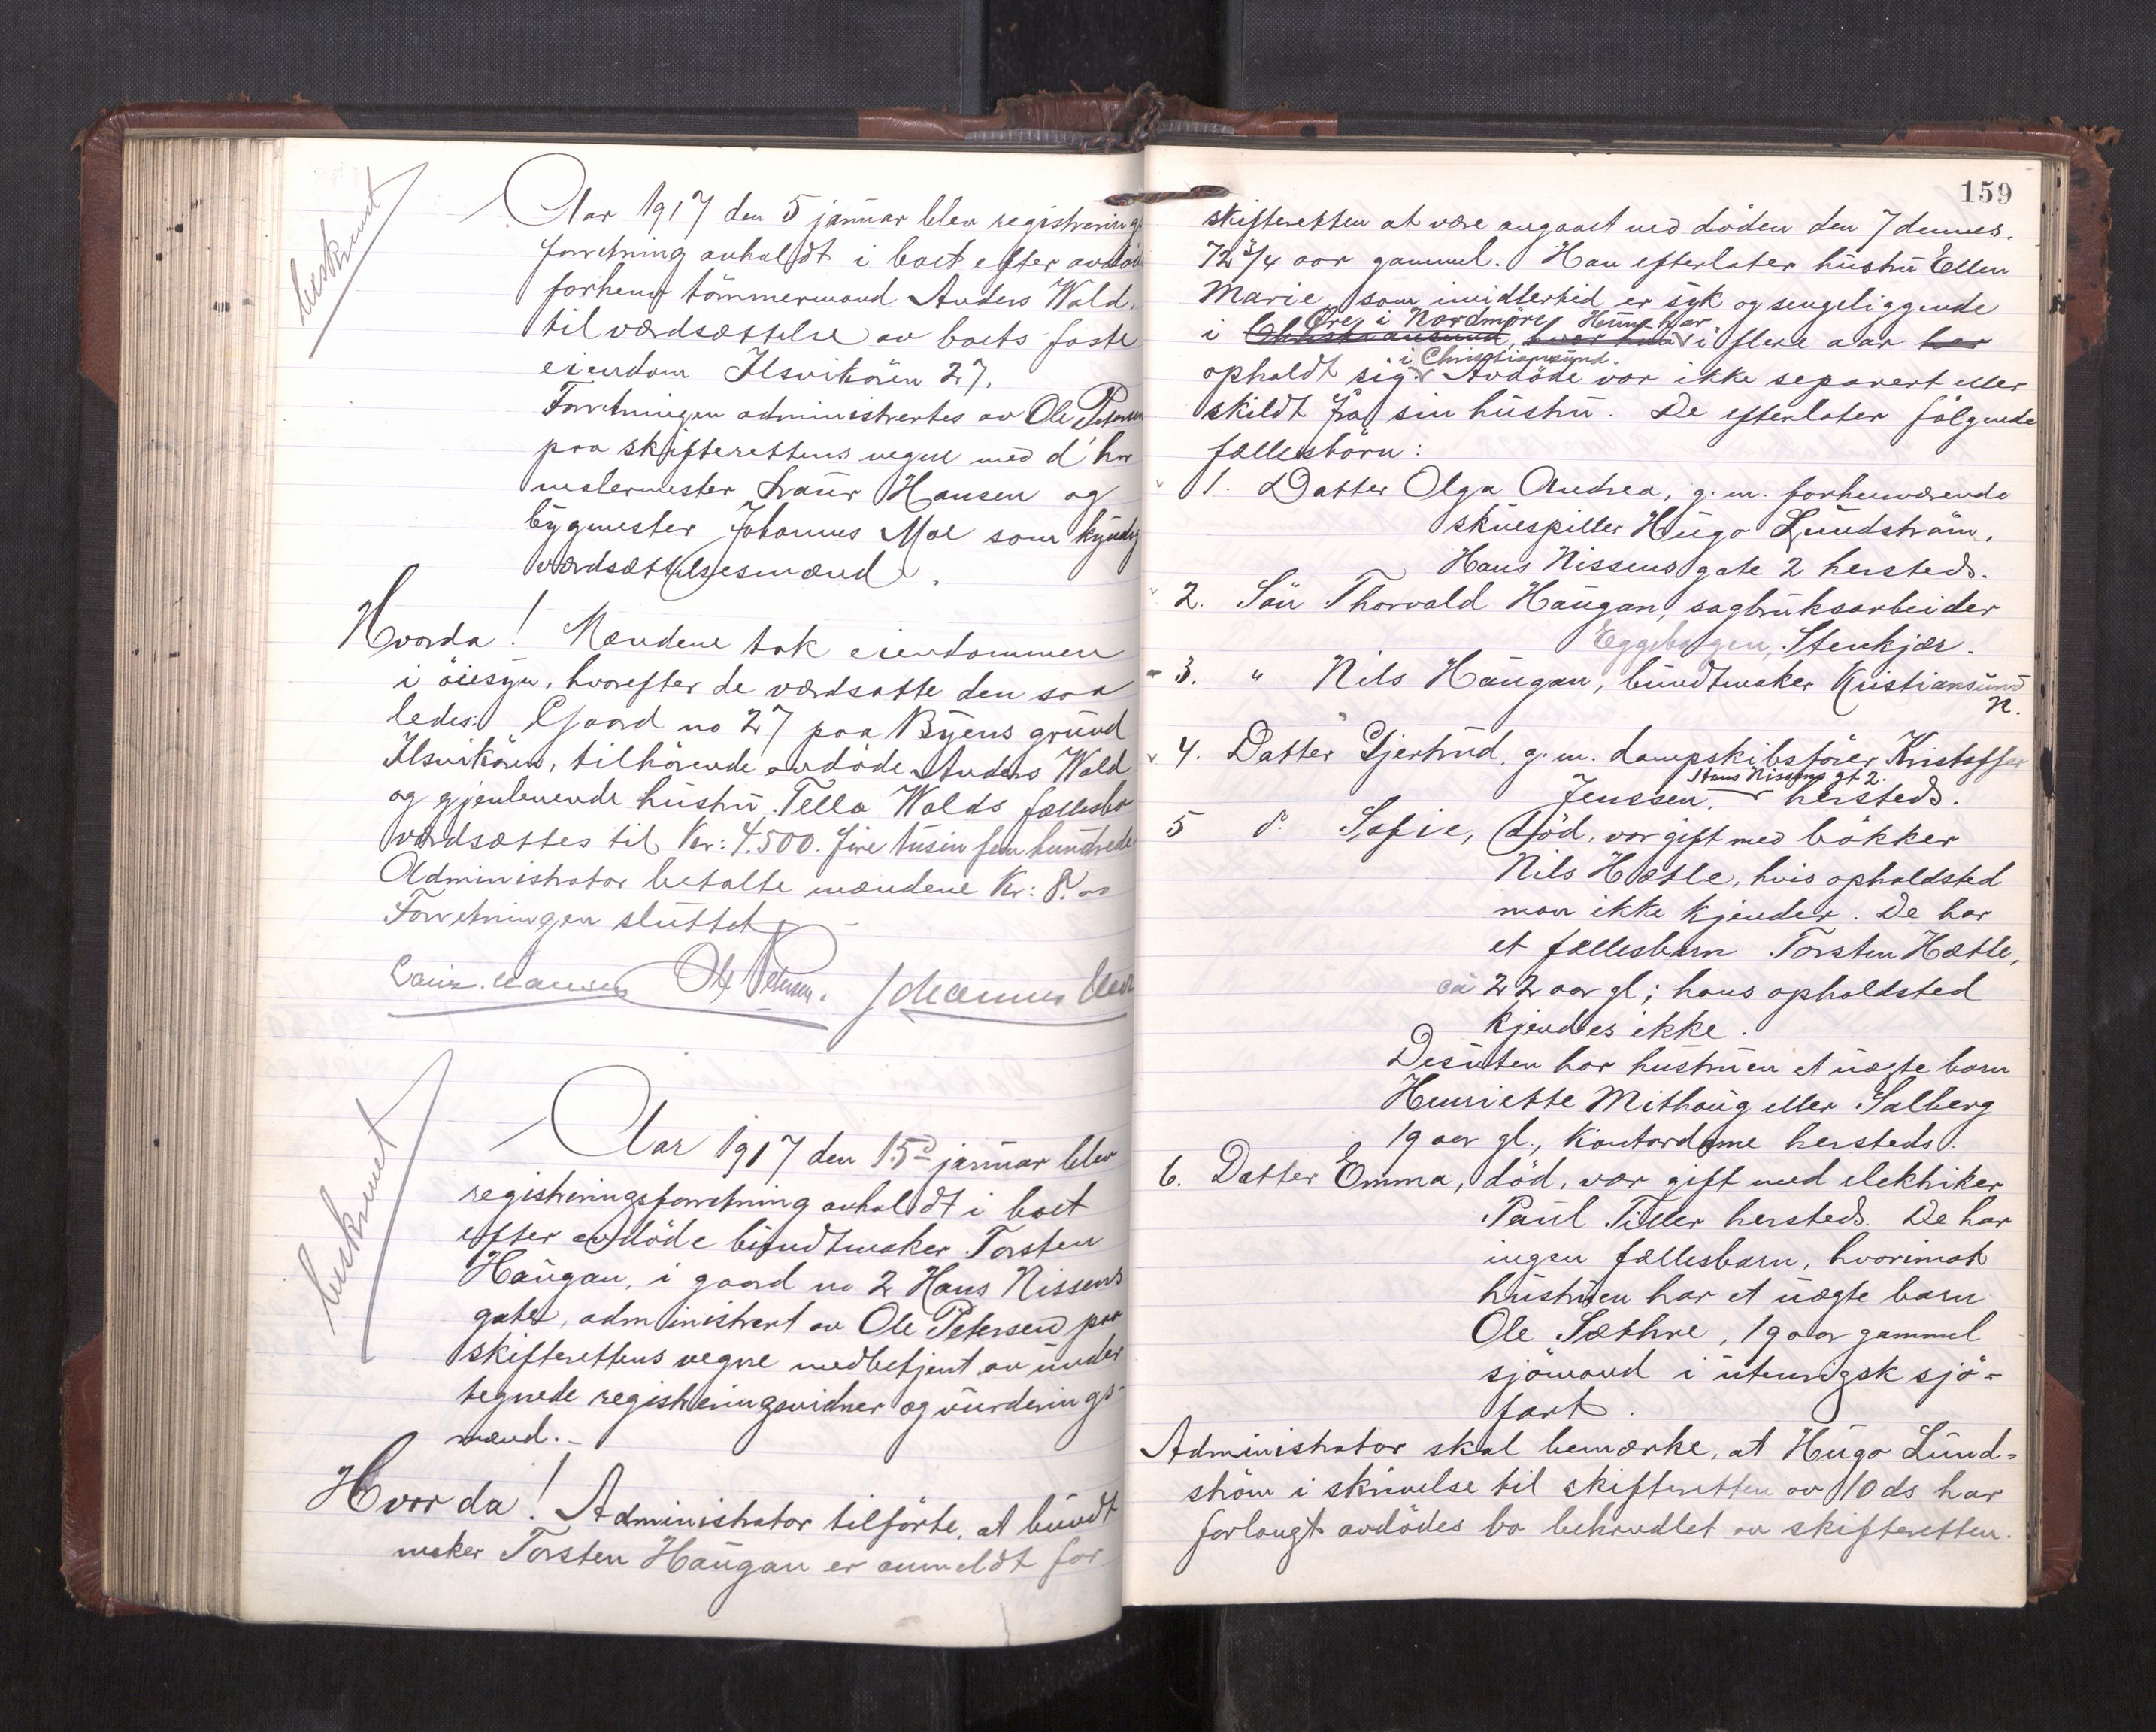 beskrevet
Aar 1917 den 5 januar blev registrerings
forretning avholdt i boet efter avdöde
forhenv tömmermand Anders Wald,
til værdsættelse av boets faste
eiendom Ilsvikören 27.
Forretningen administrertes av Ole Petersen
paa skifterettens vegne med d'hrr
malermester Laur Hansen og
bygmester Johannes Moe som kyndige
værdsættelsesmænd.
Hvorda! Mændene tok eiendommen
i öiesyn, hvorefter de værdsatte den saa
ledes: Gaard no 27 paa Byens grund
Ilsvikören, tilhörende avdöde Anders Wald
og gjenlevende hustru Tella Walds fællesbo
værdsættes til Kr: 4.500. fire tusin fem hundrede
Administrator betalte mændene Kr: 8.00
Forretningen sluttet
Laur. Hansen Ole Petersen. Johannes Moe
beskrevet
Aar 1917 den 15d januar blev
registreringsforretning avholdt i boet
efter avdöde bundtmaker Torsten
Haugan, i gaard no 2 Hans Nissens
gate, administrert av Ole Petersen paa
skifterettens vegne medbetjent av under
tegnede registreringsvidner og vurderings-
mænd.-
Hvorda! Administrator tilförte, at bundt
maker Torsten Haugan er anmeldt for
159
skifteretten at være avgaaet ved döden den 7 dennes.
72 3/4 aar gammel. Han efterlater hustru Ellen
Marie, som imidlertid er syk og sengeliggende
Øre i Nordmöre Hun har
i Christiansund, hvor hun i flere aar har
i Christiansund.
opholdt sig. Avdöde var ikke separert eller
skildt fra sin hustru. De efterlater fölgende
fællesbörn:
1. Datter Olga Andrea, g.m. forhenværende
skuespiller Hugo Lundström,
Hans Nissens gate 2 hersteds.
2. Sön Thorvald Haugan, sagbruksarbeider
Eggebogen, Stenkjær.
3. " Nils Haugan, bundtmaker Kristiansund
N.
4. Datter Gjertrud, g.m. dampskibsförer Kristoffer
Hans Nissens gt 2.
Jenssen. hersteds.
5 d. Sofie, död, var gift med bökker
Nils Hætle, hvis opholdsted
man ikke kjender. De har
et fællesbarn Torsten Hætle,
ca 22 aar gl; hans opholdsted
kjendes ikke.
Desuten har hustruen et uægte barn
Henriette Mithaug eller Salberg
19 aar gl., Kontordame hersteds.
6. Datter Emma, död, var gift med elektriker
Paul Tiller hersteds. De har
ingen fællesbarn, hvorimot
hustruen har et uægte barn
Ole Sæthre, 19 aar gammel
sjömand i utenrigsk sjö-
fart.
Administrator skal bemærke, at Hugo Lund-
ström i skrivelse til skifteretten av 10 ds har
forlangt avdödes bo behandlet av skifteretten.